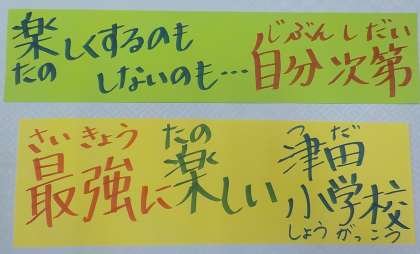 楽しくするのも
たの
しないのも…
じぶんしだい
自分次第
さいきょう
最強に
たの
楽しい
つだ
津田
小学校
しょうがっこう